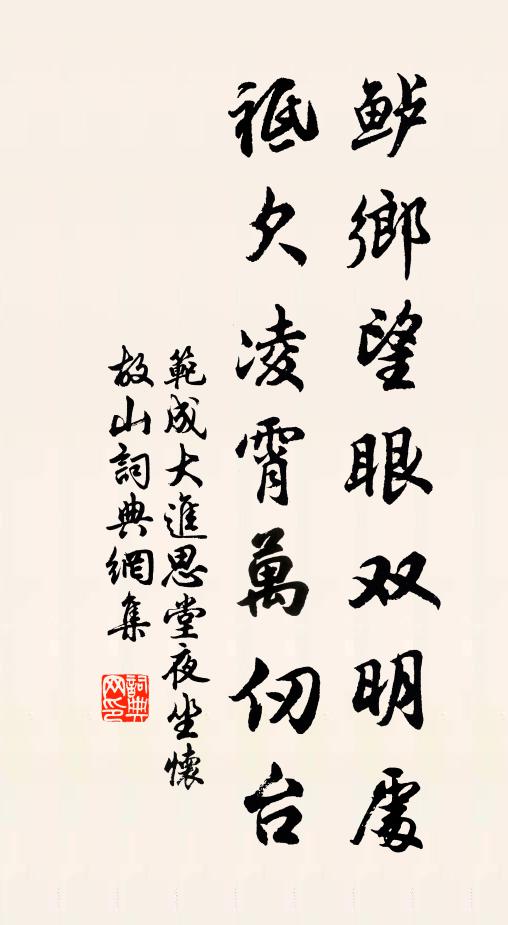 鲈鄉望眼双明處
祗欠凌霄萬仞台
範成大進思堂夜坐懷
故山詞典網集
詞典网印